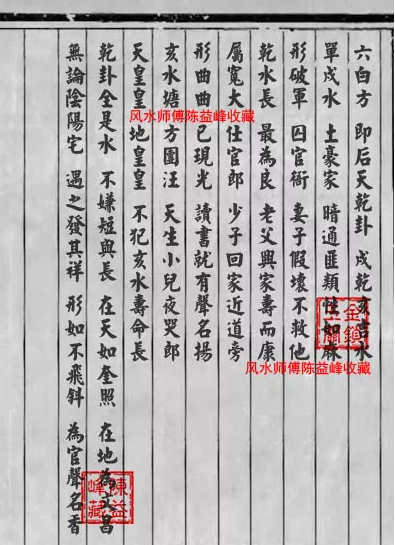 六白方 即后天乾卦 戌乾亥吉水
單戌水 土豪家 暗通匪類性如麻
形破軍 囚官衙 妻子假壞不救他
乾水長 最為良 老父興家壽而康
屬寬大 仕官郎 少子回家近道旁
形曲曲 已現光 讀書就有聲名揚
亥水塘 方圓汪 天生小兒夜哭郎
天皇皇 地皇皇 不犯亥水壽命長
乾卦全是水 不嫌短與長 在天如奎照 在地為文昌
無論陰陽宅 遇之發其祥 形如不飛斜 為官聲名香
风水师傅陈益峰收藏
风水师傅陈益峰收藏
金鎖玉關
陳益峰藏